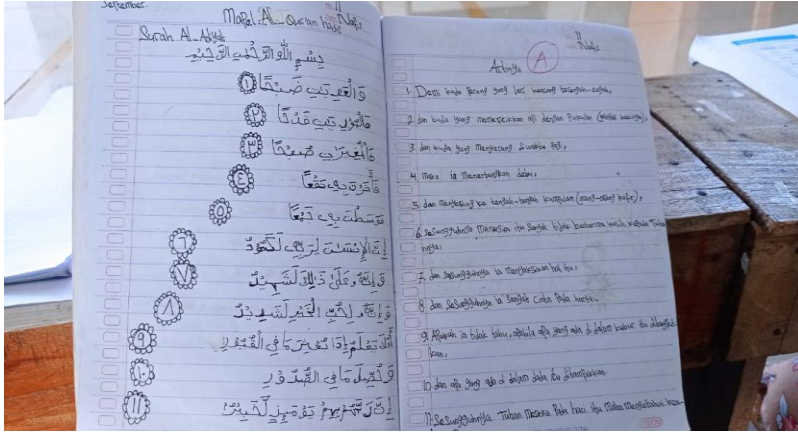 September
Mapel: AL-Qur'an hadis
Nafis
Surah AL-Adiyat
بِسْمِ اللّٰهِ الرَّحْمٰنِ الرَّحِيْمِ
وَالْعٰدِيٰتِ ضَبْحًا ١
فَالْمُوْرِيٰتِ قَدْحًا ٢
فَالْمُغِيْرٰتِ صُبْحًا ٣
فَأَثَرْنَ بِهِ نَقْعًا ٤
فَوَسَطْنَ بِهِ جَمْعًا ٥
إِنَّ الْإِنْسَانَ لِرَبِّهِ لَكَنُوْدٌ ٦
وَإِنَّهُ عَلٰى ذٰلِكَ لَشَهِيْدٌ ٧
وَإِنَّهُ لِحُبِّ الْخَيْرِ لَشَدِيْدٌ ٨
أَفَلَا يَعْلَمُ إِذَا بُعْثِرَ مَا فِي الْقُبُوْرِ ٩
وَحُصِّلَ مَا فِي الصُّدُوْرِ ١٠
إِنَّ رَبَّهُمْ بِهِمْ يَوْمَئِذٍ لَّخَبِيْرٌ ١١
Nafis
Artinya
A
1. Demi kuda perang yang lari kencang terengah-engah,
2. dan kuda yang memercikkan api dengan Pukulan
3. dan kuda yang menyerang diwaktu pagi,
4. maka ia menerbangkan debu,
5. dan menyerbu ke tengah-tengah kumpulan (orang-orang kafir),
6. sesungguhnya Manusia itu sangat tidak berterima kasih kepada Tuhan
nya.
7. dan sesungguhnya ia menyaksikan hal itu,
8. dan sesungguhnya ia sangat cinta Pada harta.
9. Apakah ia tidak tahu, apabila apa yang ada di dalam kubur itu dibangkit
kan,
10. dan apa yang ada di dalam dada itu ditampakkan.
11. Sesungguhnya Tuhan Mereka Pada hari itu Maha Mengetahui